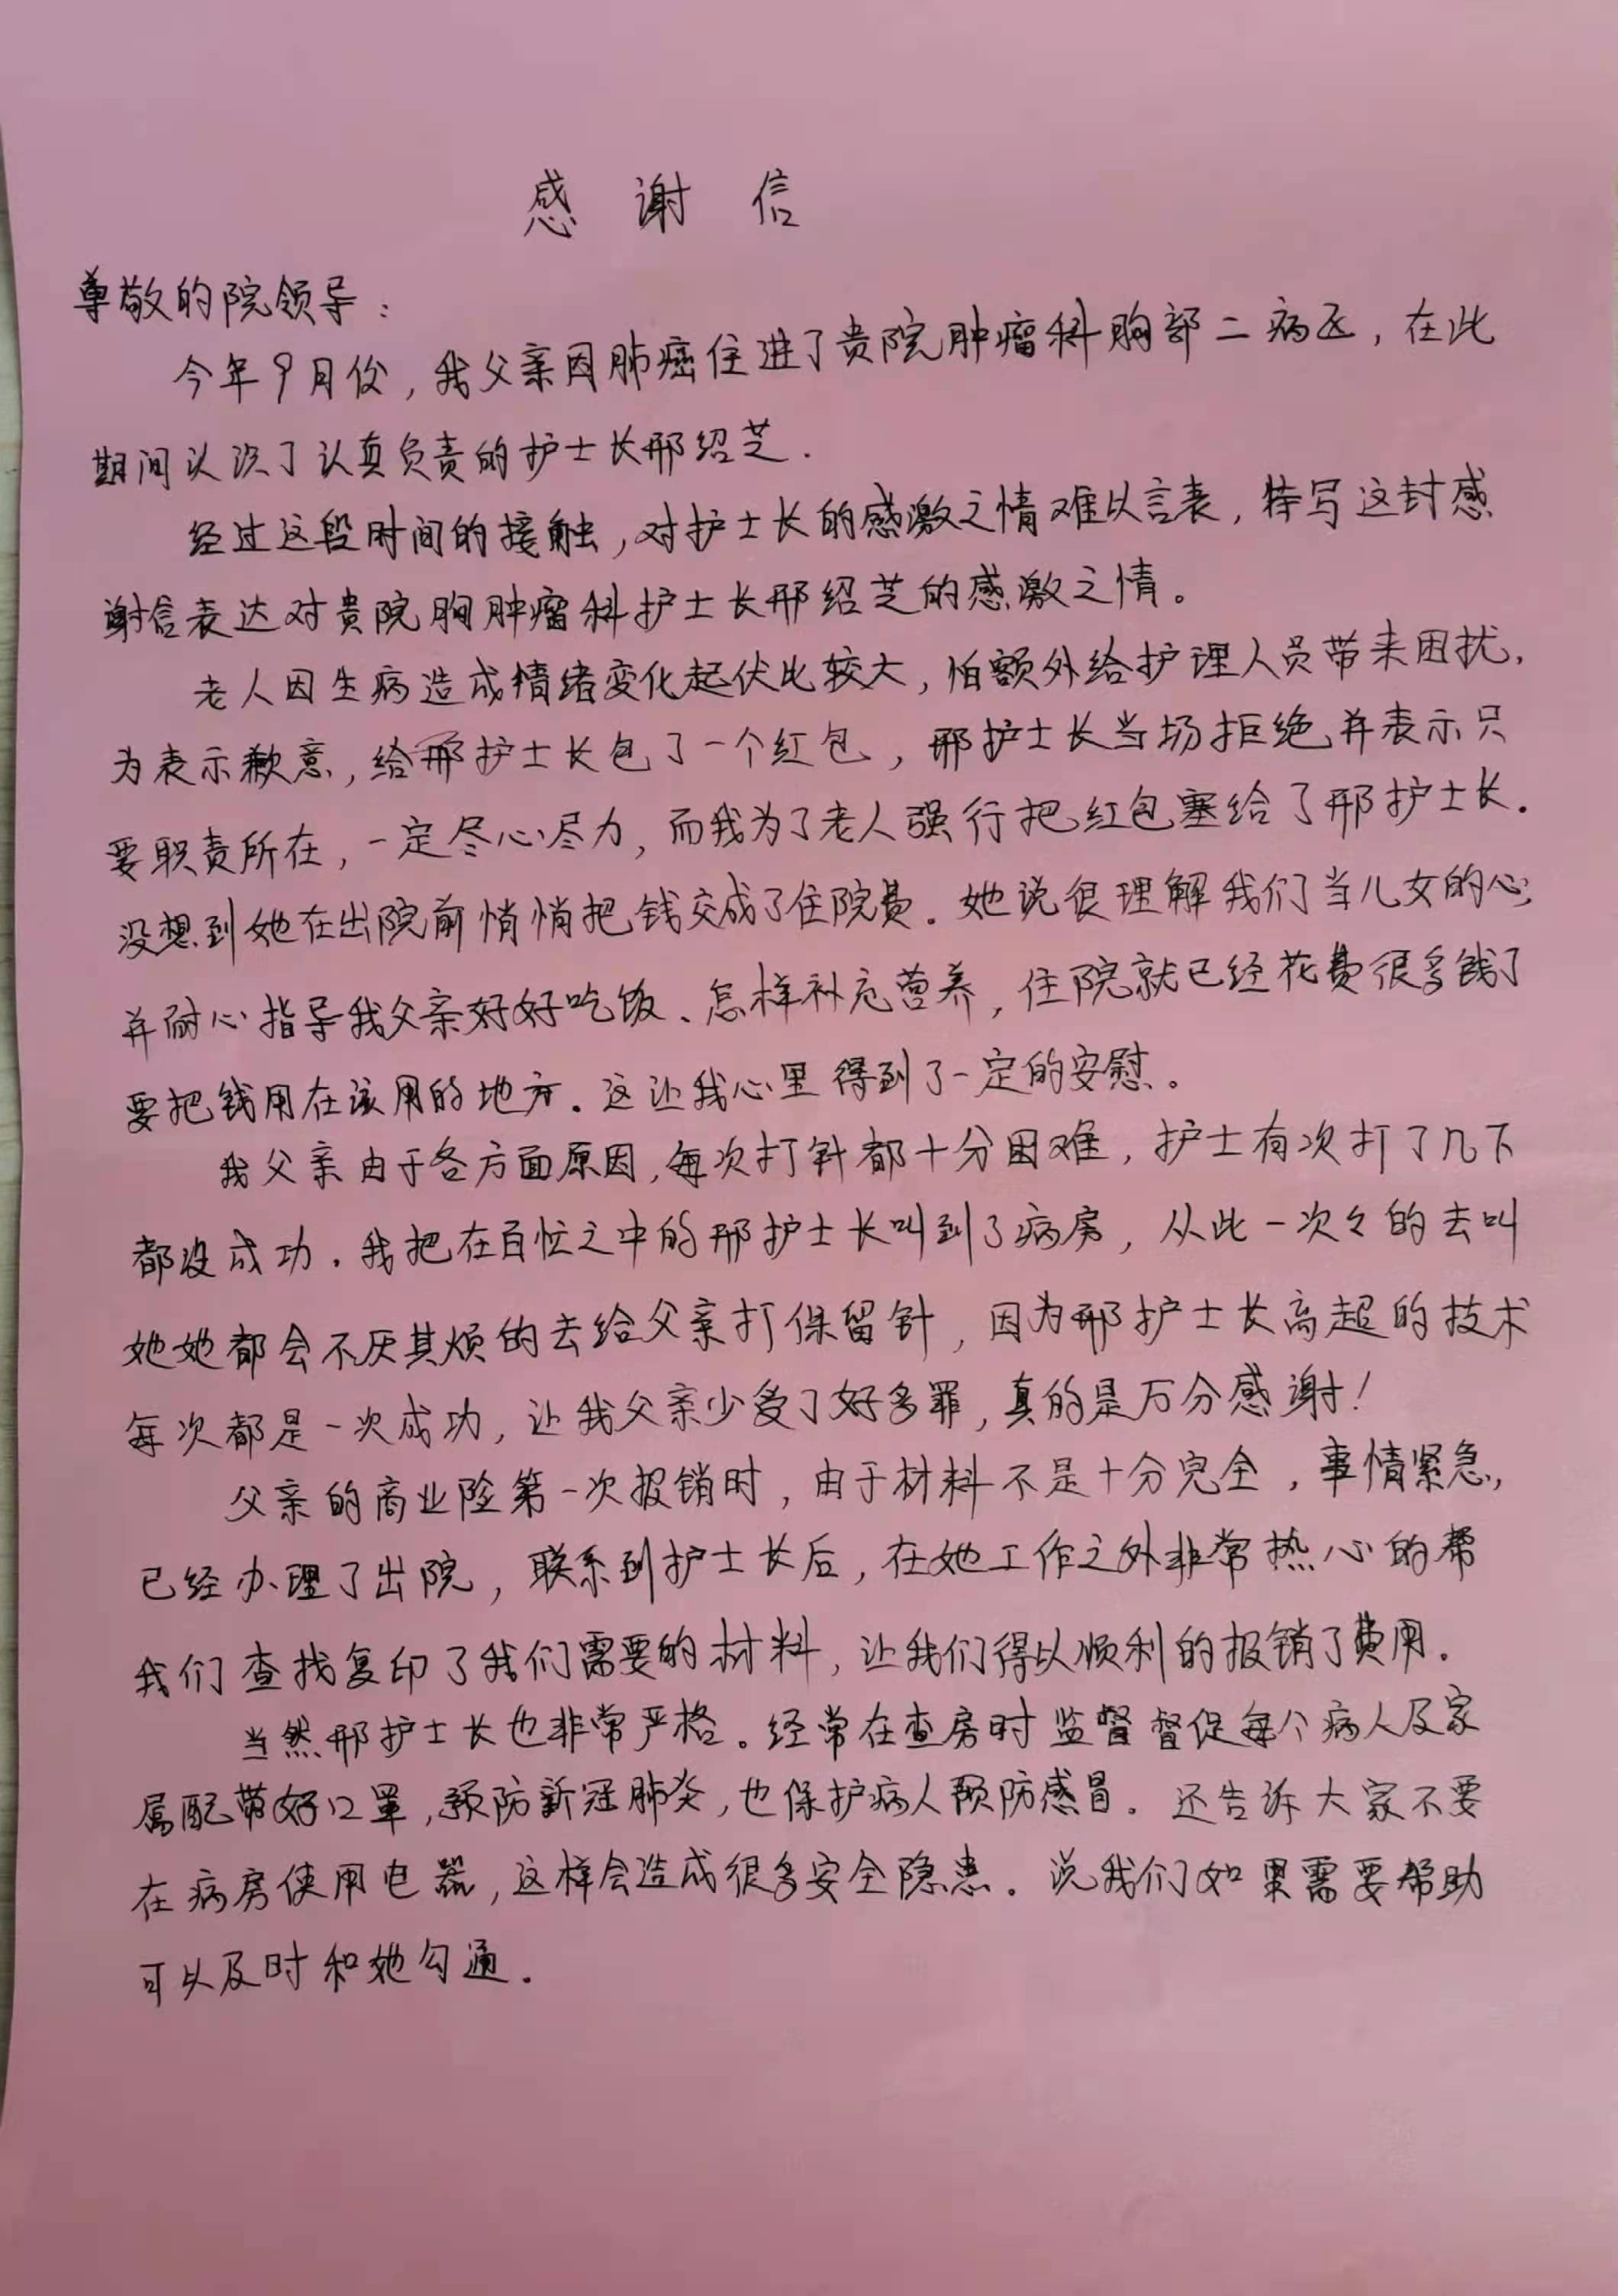 感谢信
尊敬的院领导：
今年9月份，我父亲因肺癌住进了贵院肿瘤科胸部二病区，在此
期间认识了认真负责的护士长邢绍芝.
经过这段时间的接触，对护士长的感激之情难以言表，特写这封感
谢信表达对贵院胸肿瘤科护士长邢绍芝的感激之情。
老人因生病造成情绪变化起伏比较大，怕额外给护理人员带来困扰，
为表示歉意，给邢护士长包了一个红包，邢护士长当场拒绝并表示只
要职责所在，一定尽心尽力，而我为了老人强行把红包塞给了邢护士长.
没想到她在出院前悄悄把钱交成了住院费.她说很理解我们当儿女的心,
并耐心指导我父亲好好吃饭、怎样补充营养，住院就已经花费很多钱了
要把钱用在该用的地方.这让我心里得到了一定的安慰。
我父亲由于各方面原因,每次打针都十分困难，护士有次打了几下
都没成功.我把在百忙之中的邢护士长叫到了病房，从此一次々的去叫
她她都会不厌其烦的去给父亲打保留针，因为邢护士长高超的技术
每次都是一次成功，让我父亲少受了好多罪，真的是万分感谢！
父亲的商业险第一次报销时，由于材料不是十分完全，事情紧急，
已经办理了出院，联系到护士长后，在她工作之外非常热心的帮
我们查找复印了我们需要的材料，让我们得以顺利的报销了费用.
当然邢护士长也非常严格。经常在查房时监督督促每个病人及家
属配带好口罩，预防新冠肺炎，也保护病人预防感冒。还告诉大家不要
在病房使用电器，这样会造成很多安全隐患。说我们如果需要帮助
可以及时和她勾通.